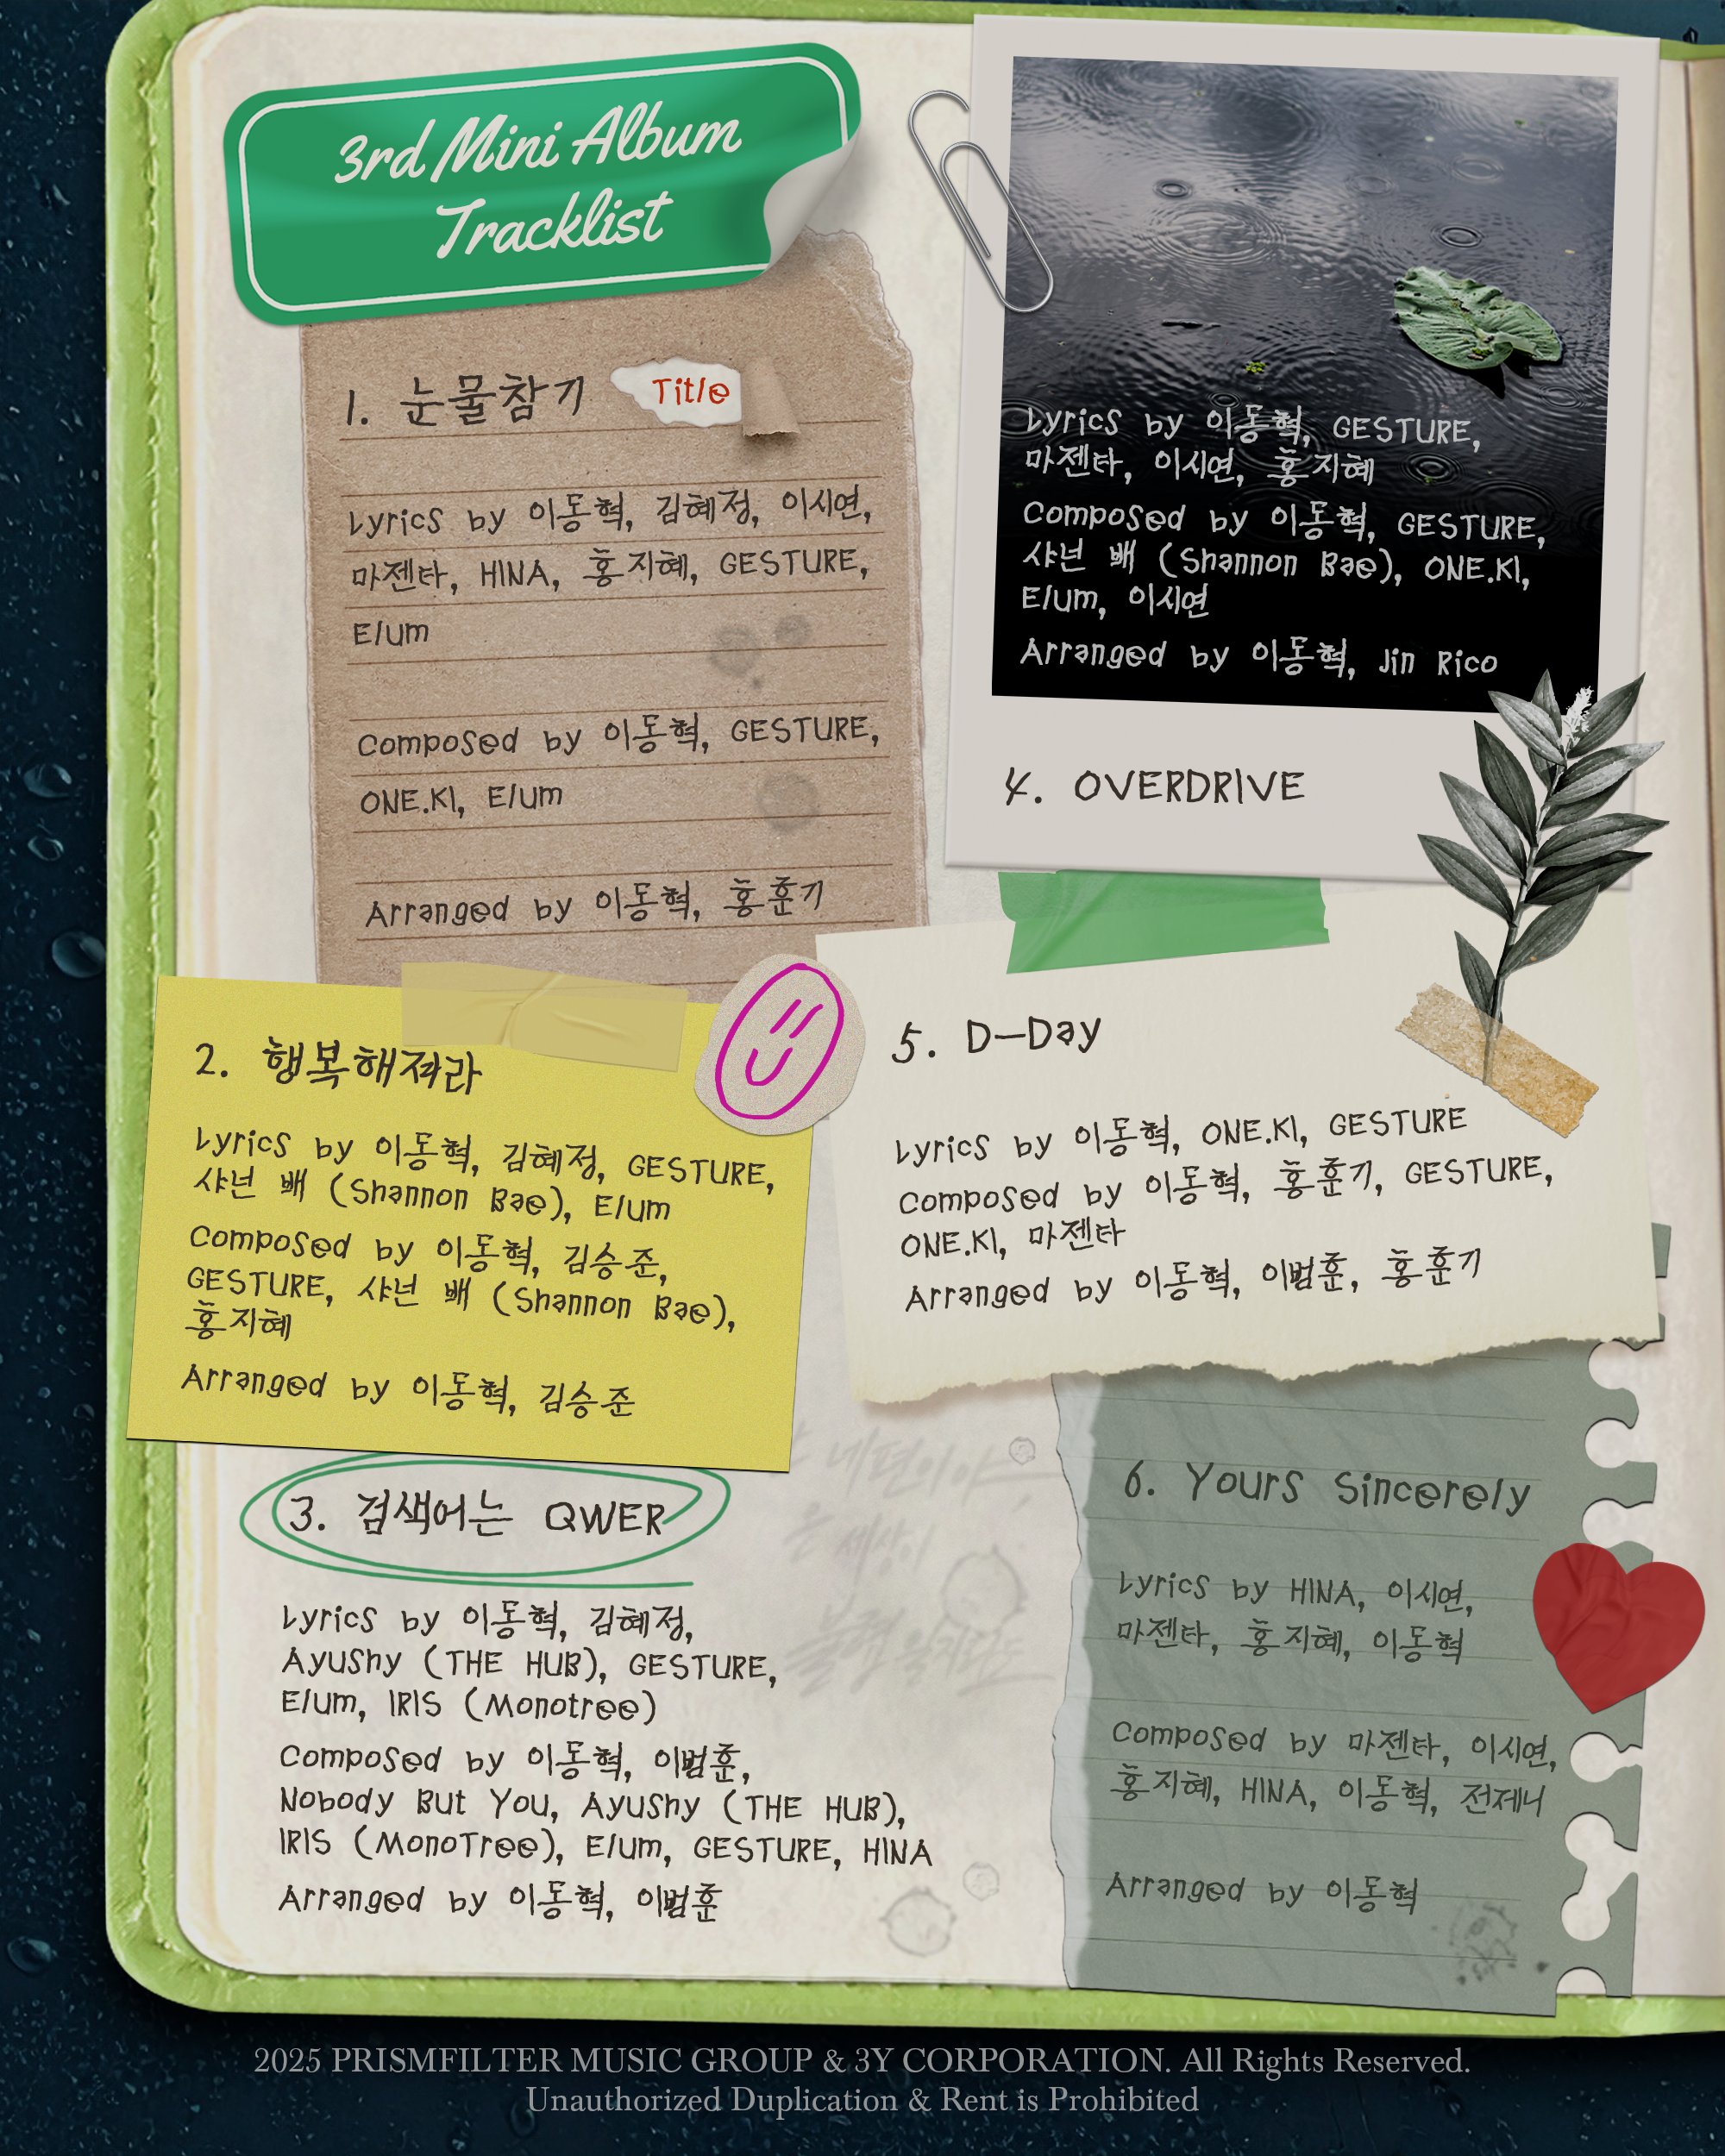 3rd Mini Album
Tracklist
1. 눈물참기 Title
Lyrics by 이동혁, 김혜정, 이시연,
마젠타, HINA, 홍지혜, GESTURE,
Elum
Composed by 이동혁, GESTURE,
ONE.KI, Elum
Arranged by 이동혁, 홍훈기
2. 행복해져라
Lyrics by 이동혁, 김혜정, GESTURE,
샤넌 배 (Shannon Bae), Elum
Composed by 이동혁, 김승준,
GESTURE, 샤넌 배 (Shannon Bae),
홍지혜
Arranged by 이동혁, 김승준
3. 검색어는 QWER
Lyrics by 이동혁, 김혜정,
Ayushy (THE HUB), GESTURE,
Elum, IRIS (Monotree)
Composed by 이동혁, 이범훈,
Nobody But You, Ayushy (THE HUB),
IRIS (MonoTree), Elum, GESTURE, HINA
Arranged by 이동혁, 이범훈
Lyrics by 이동혁, GESTURE,
마젠타, 이시연, 홍지혜
Composed by 이동혁, GESTURE,
샤넌 배 (Shannon Bae), ONE.KI,
Elum, 이시연
Arranged by 이동혁, Jin Rico
4. OVERDRIVE
5. D-Day
Lyrics by 이동혁, ONE.KI, GESTURE
Composed by 이동혁, 홍훈기, GESTURE,
ONE.KI, 마젠타
Arranged by 이동혁, 이범훈, 홍훈기
네편이야
세상이
6. Yours Sincerely
Lyrics by HINA, 이시연,
마젠타, 홍지혜, 이동혁
Composed by 마젠타, 이시연,
홍지혜, HINA, 이동혁, 전제니
Arranged by 이동혁
2025 PRISMFILTER MUSIC GROUP & 3Y CORPORATION. All Rights Reserved.
Unauthorized Duplication & Rent is Prohibited